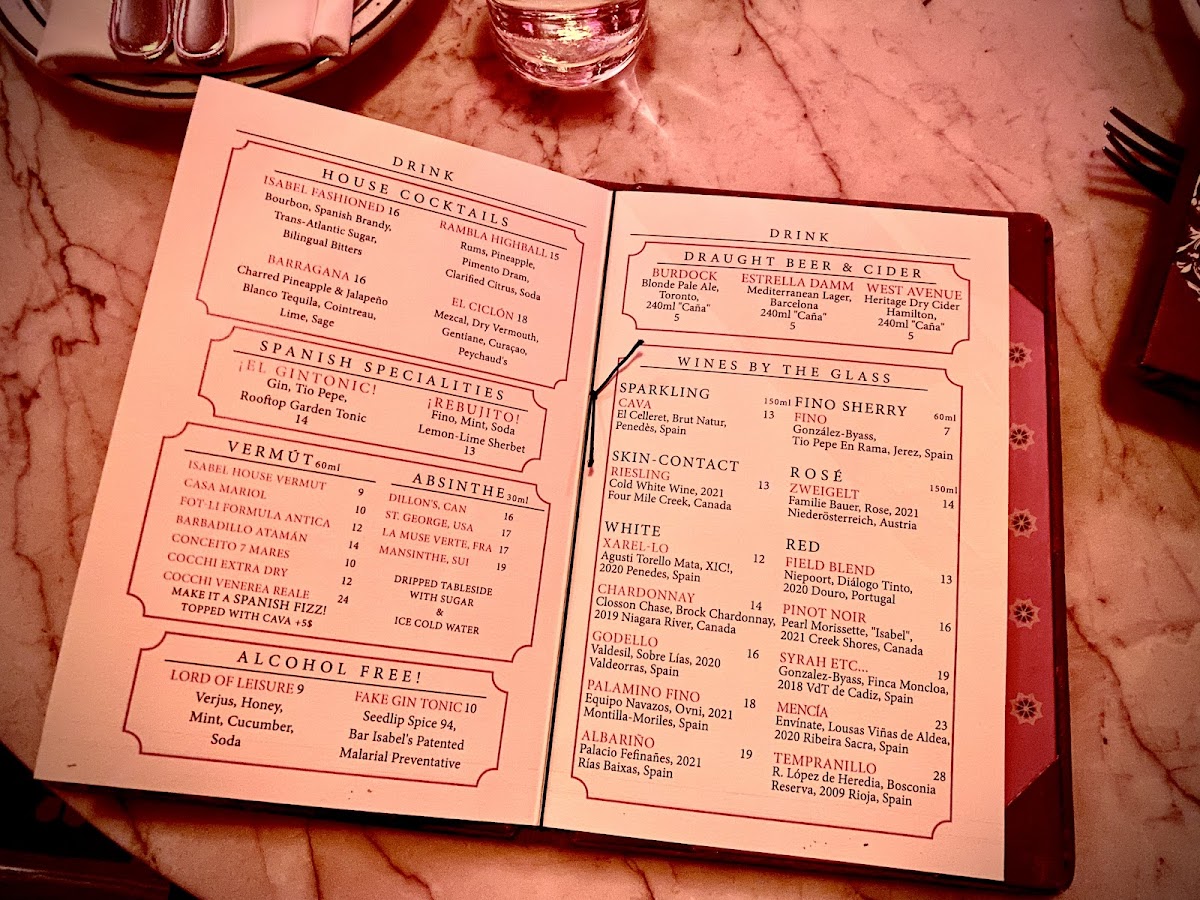 DRINK
HOUSE COCKTAILS
ISABEL FASHIONED 16
Bourbon, Spanish Brandy,
Trans-Atlantic Sugar,
Bilingual Bitters
BARRAGANA 16
Charred Pineapple & Jalapeño
Blanco Tequila, Cointreau,
Lime, Sage
RAMBLA HIGHBALL 15
Rums, Pineapple,
Pimento Dram,
Clarified Citrus, Soda
EL CICLÓN 18
Mezcal, Dry Vermouth,
Gentiane, Curaçao,
Peychaud's
SPANISH SPECIALITIES
¡EL GINTONIC!
Gin, Tio Pepe,
Rooftop Garden Tonic
14
¡REBUJITO!
Fino, Mint, Soda
Lemon-Lime Sherbet
13
VERMÚT 60ml
ISABEL HOUSE VERMUT 9
CASA MARIOL 10
FOT-LI FORMULA ANTICA 12
BARBADILLO ATAMÁN 14
CONCEITO 7 MARES 10
COCCHI EXTRA DRY 12
COCCHI VENEREA REALE 24
MAKE IT A SPANISH FIZZ!
TOPPED WITH CAVA +5$
ABSINTHE 30ml
DILLON'S, CAN 16
ST. GEORGE, USA 17
LA MUSE VERTE, FRA 17
MANSINTHE, SUI 19
DRIPPED TABLESIDE
WITH SUGAR
&
ICE COLD WATER
ALCOHOL FREE!
LORD OF LEISURE 9
Verjus, Honey,
Mint, Cucumber,
Soda
FAKE GIN TONIC 10
Seedlip Spice 94,
Bar Isabel's Patented
Malarial Preventative
DRINK
DRAUGHT BEER & CIDER
BURDOCK
Blonde Pale Ale,
Toronto,
240ml "Caña"
5
ESTRELLA DAMM
Mediterranean Lager,
Barcelona
240ml "Caña"
5
WEST AVENUE
Heritage Dry Cider
Hamilton,
240ml "Caña"
5
WINES BY THE GLASS
SPARKLING 150ml
CAVA 13
El Celleret, Brut Natur,
Penedès, Spain
SKIN-CONTACT
RIESLING 13
Cold White Wine, 2021
Four Mile Creek, Canada
WHITE
XAREL-LO 12
Agusti Torello Mata, XIC!,
2020 Penedes, Spain
CHARDONNAY 14
Closson Chase, Brock Chardonnay,
2019 Niagara River, Canada
GODELLO 16
Valdesil, Sobre Lías, 2020
Valdeorras, Spain
PALAMINO FINO 18
Equipo Navazos, Ovni, 2021
Montilla-Moriles, Spain
ALBARIÑO 19
Palacio Fefinañes, 2021
Rías Baixas, Spain
FINO SHERRY 60ml
FINO 7
González-Byass,
Tio Pepe En Rama, Jerez, Spain
ROSÉ 150ml
ZWEIGELT 14
Familie Bauer, Rose, 2021
Niederösterreich, Austria
RED
FIELD BLEND 13
Niepoort, Diálogo Tinto,
2020 Douro, Portugal
PINOT NOIR 16
Pearl Morissette, "Isabel",
2021 Creek Shores, Canada
SYRAH ETC... 19
Gonzalez-Byass, Finca Moncloa,
2018 VdT de Cadiz, Spain
MENCÍA 23
Envínate, Lousas Viñas de Aldea,
2020 Ribeira Sacra, Spain
TEMPRANILLO 28
R. López de Heredia, Bosconia
Reserva, 2009 Rioja, Spain